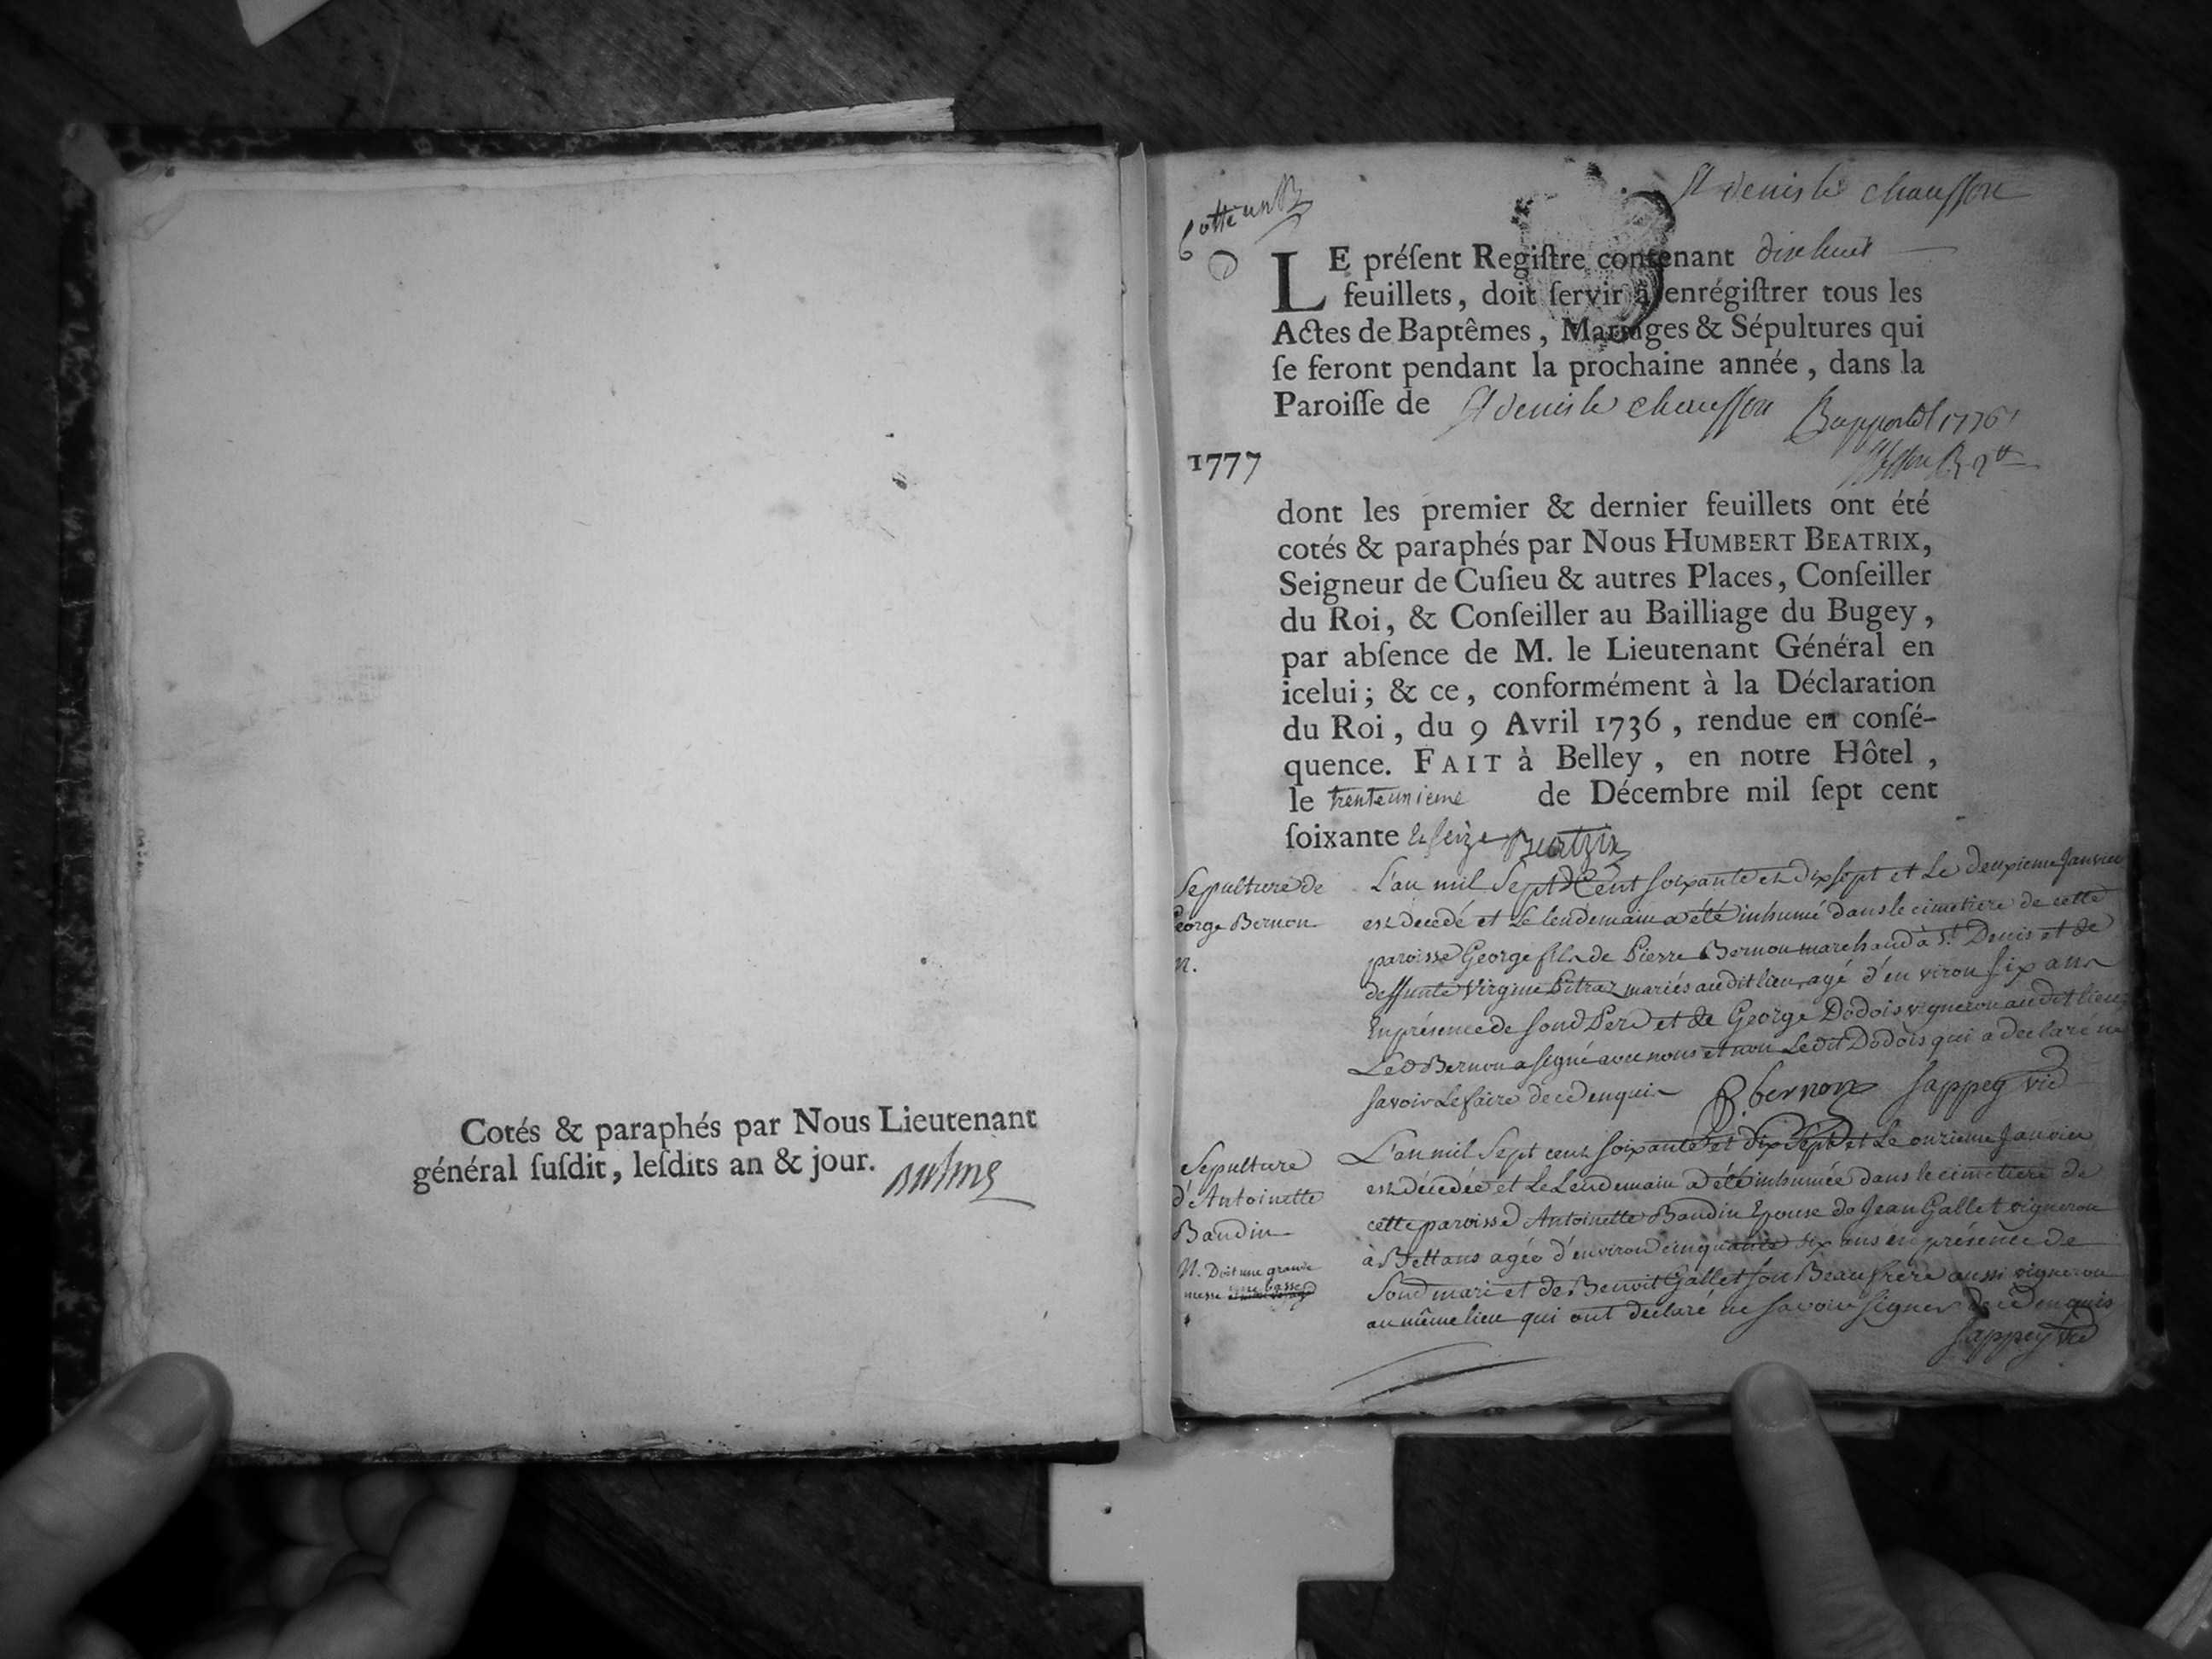 Cotés & paraphés par Nous Lieutenant
général ſuſdit, leſdits an & jour.
St denis le chausson
Cotte un
LE préſent Regiſtre contenant dix huit
feuillets, doit ſervir à enrégiſtrer tous les
Actes de Baptêmes, Mariages & Sépultures qui
ſe feront pendant la prochaine année, dans la
Paroiſſe de St denis le chausson
1776
1777
dont les premier & dernier feuillets ont été
cotés & paraphés par Nous HUMBERT BEATRIX,
Seigneur de Cuſieu & autres Places, Conſeiller
du Roi, & Conſeiller au Bailliage du Bugey,
par abſence de M. le Lieutenant Général en
icelui; & ce, conformément à la Déclaration
du Roi, du 9 Avril 1736, rendue en conſé-
quence. FAIT à Belley, en notre Hôtel,
le trenteunieme de Décembre mil ſept cent
ſoixante et seize Beatrix
Sepulture de
George Bernon
N.
L'an mil Sept Cent soixante et dix sept et Le deuxieme Janvier
est decedé et Le lendemain a été inhumé dans le cimetiere de cette
paroisse George fils de Pierre Bernon marchand à St Denis et de
deffunte Virginie Pitraz mariés audit lieu, agé d'environ six ans
En présence de sond Pere et de George Dodois vigneron audit lieu
Led Bernon a signé avec nous et non Ledit Dodois qui a declaré ne
savoir Le faire de ce enquis P. bernon Sappey vic
Sepulture
d'Antoinette
Baudin
N. Doit une grande
messe
L'an mil Sept cent soixante et dix Sept et Le onzieme Janvier
est décédée et Le Lendemain a été inhumée dans le cimetiere de
cette paroisse Antoinette Baudin Epouse de Jean Gallet vigneron
à Bettans agée d'environ cinquante six ans en présence de
Sond mari et de Benoit Gallet son Beaufrere aussi vigneron
au même lieu qui ont declaré ne savoir signer de ce enquis
Sappey vic